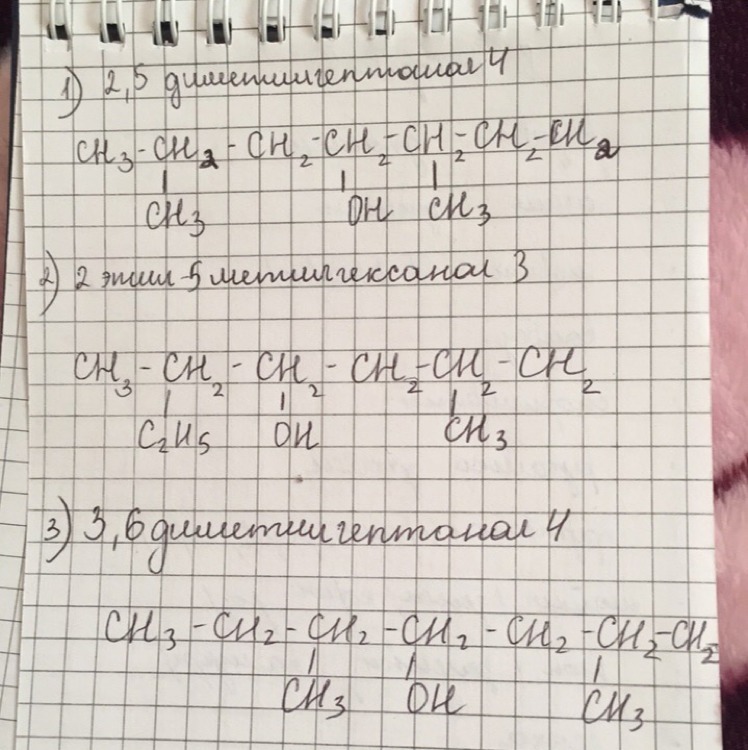 1) 2,5 диметилгептанал 4
CH₃ - CH₂ - CH₂ - CH₂ - CH₂ - CH₂ - CH₂
CH₃ OH CH₃
2) 2 этил-5 метилгексанал 3
CH₃ - CH₂ - CH₂ - CH₂ - CH₂ - CH₂
C₂H₅ OH CH₃
3) 3,6 диметилгептанал 4
CH₃ - CH₂ - CH₂ - CH₂ - CH₂ - CH₂ - CH₂
CH₃ OH CH₃